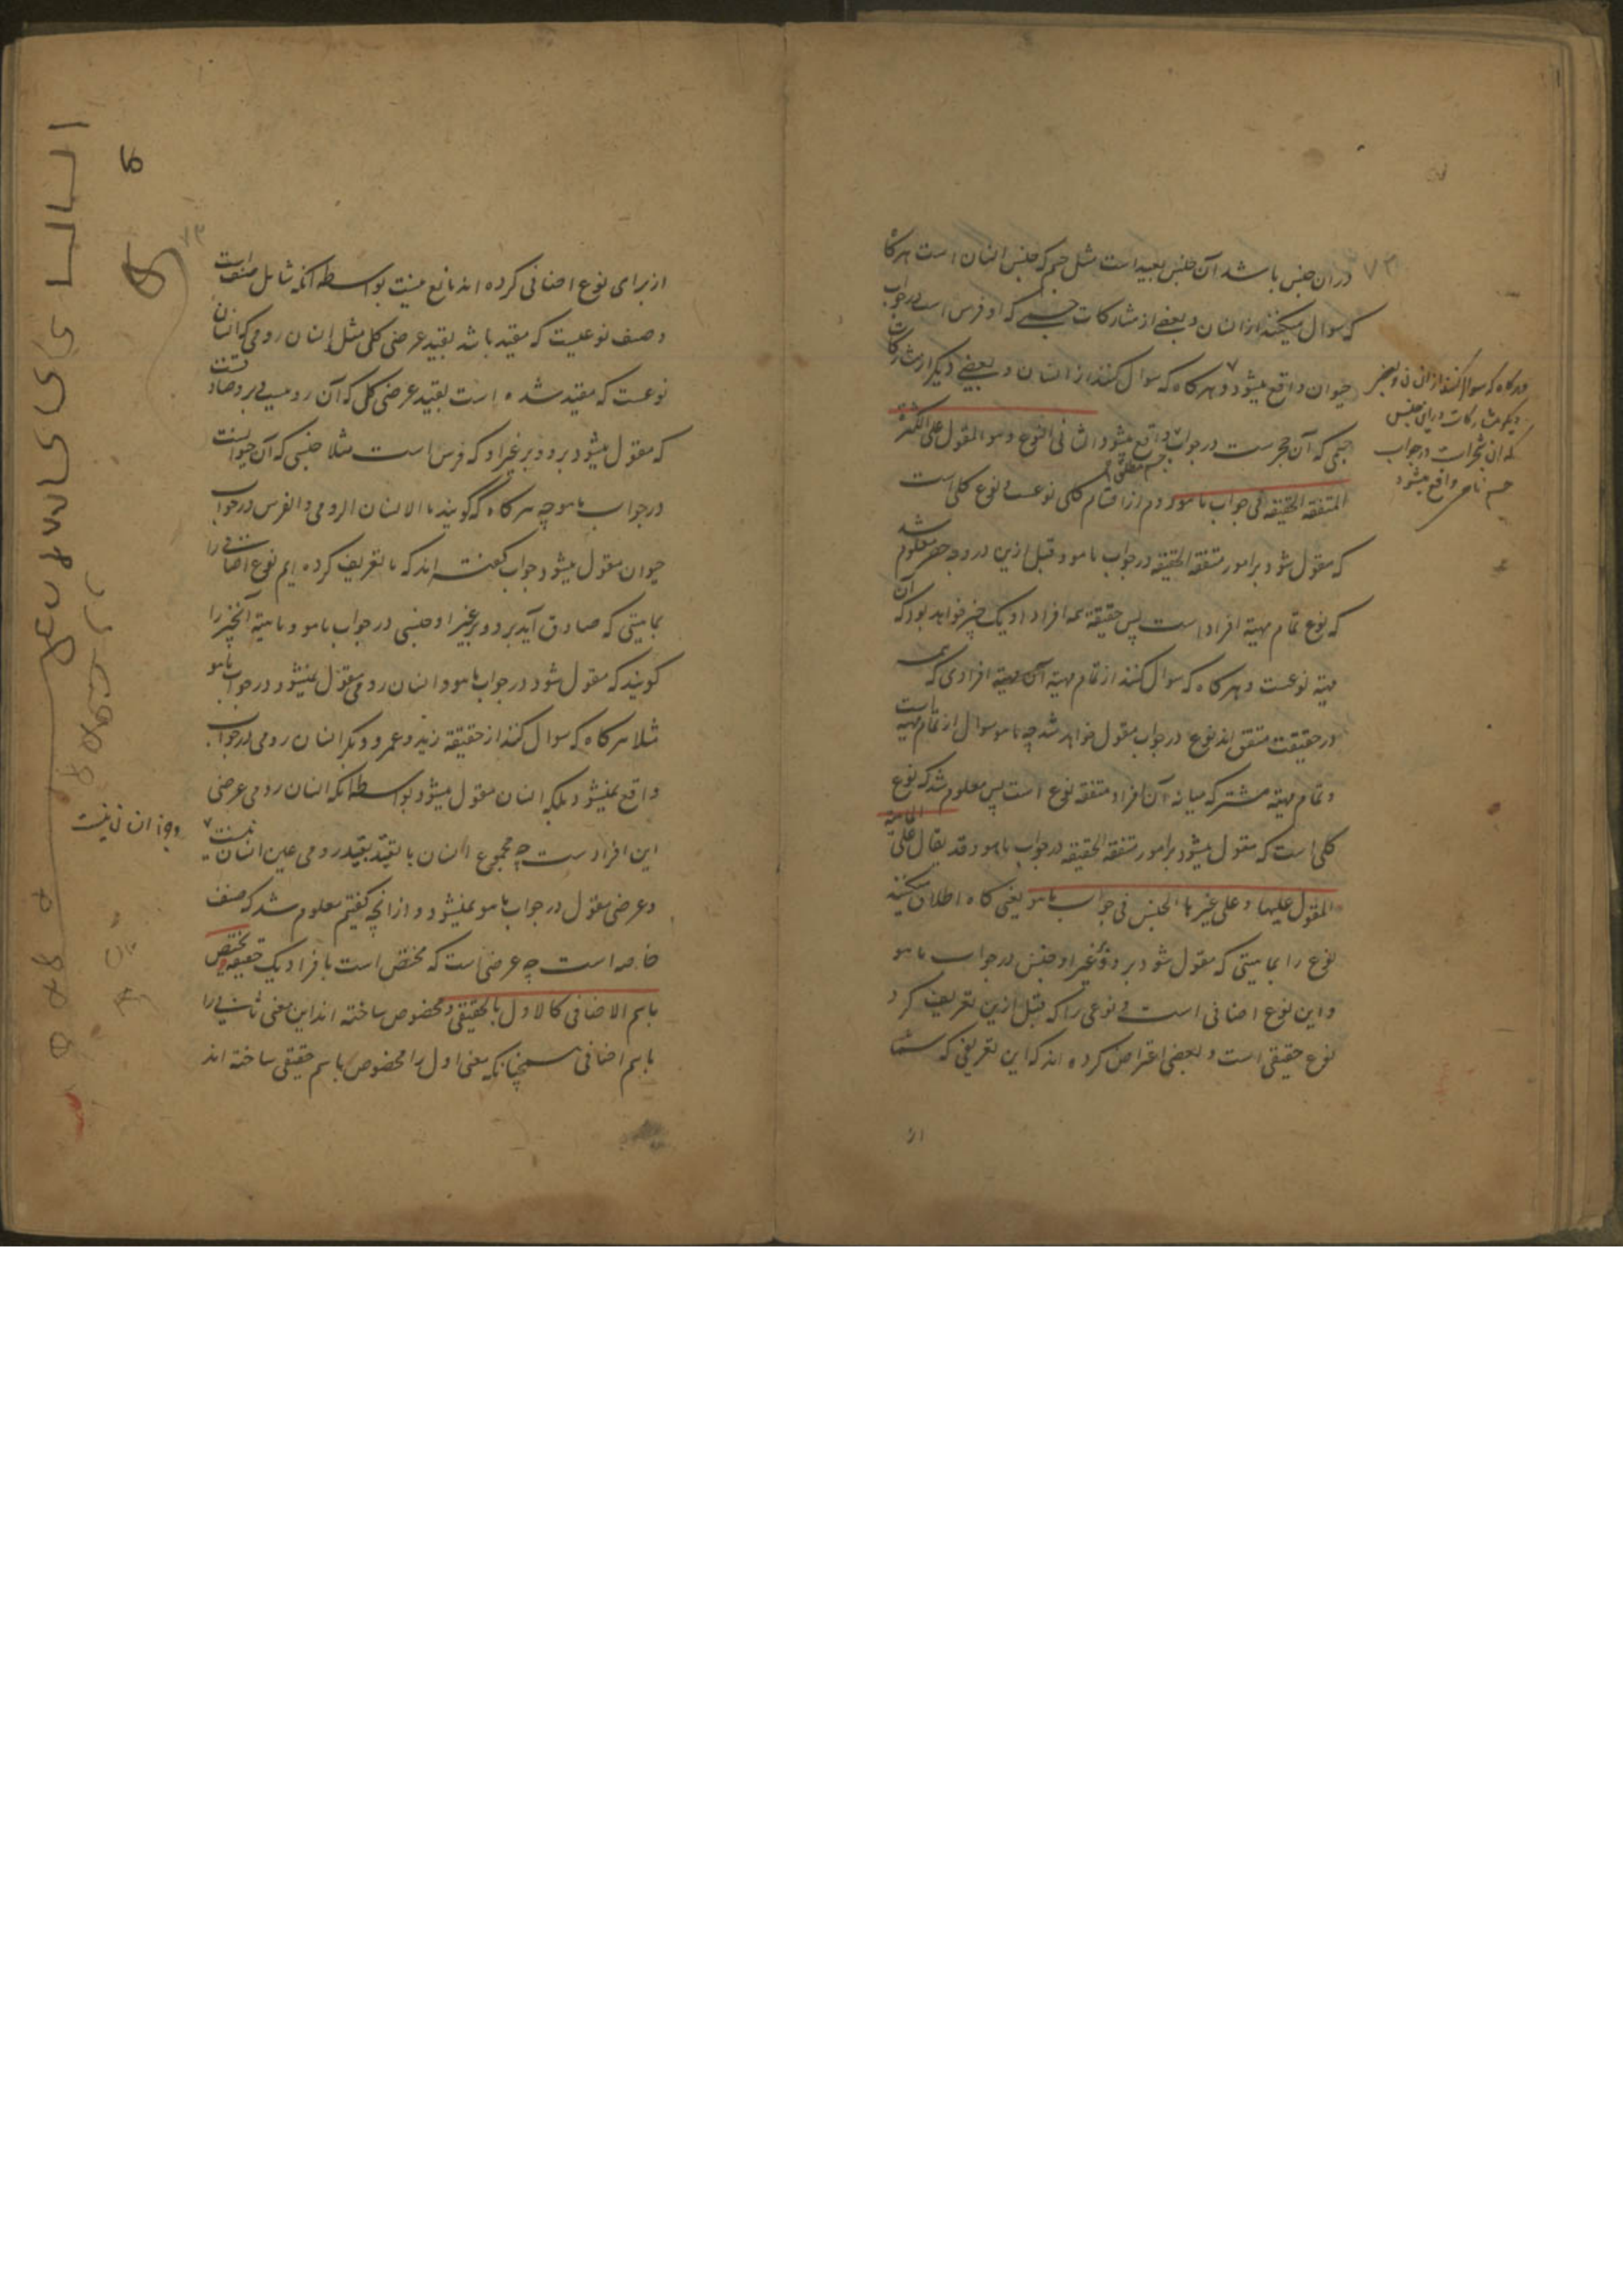 ۷۳
در آن جنس باشد آن جنس بعید است مثل جسم که جنس انسان است هرگا
که سوال میکنند از انسان و بعضے از مشارکات جسمے که او فرس است در جواب
حیوان واقع میشود و هرکاه که سوال کنند از انسان و بعضے دیکر از مشارکات
جسمی که آن حجر ست در جواب جسم مطلق واقع میشود الثانی النوع وهو المقول علی الکثرة
المتفقة الحقیقة فی جواب ماهو دوم از اقسام کلی نوعست و نوع کلی است
که مقول شود بر امور متفقة الحقیقه در جواب ماهو و قبل ازین در وجه حصر معلوم شد
که نوع تمام مهیة افراد است پس حقیقة همه افراد او یک چیز خواهد بود که آن
مهیة نوعست و هرکاه که سوال کنند از تمام مهیة آن افرادی که همه
در حقیقت متفق اند نوع در جواب مقول خواهد شد چه ماهو سوال از تمام مهیة است
و تمام مهیة مشترکه میانه آن افراد متفقه نوع است پس معلوم شد که نوع
کلی است که مقول میشود بر امور متفقة الحقیقه در جواب ماهو و قد یقال علی الماهیة
المقول علیها و علی غیرها الجنس فی جواب ماهو یعنی کاه اطلاق میکنند
نوع را بماهیتی که مقول شود بر او و بر غیر او جنس در جواب ماهو
و این نوع اضافی است و نوعی را که قبل ازین تعریف کرد
نوع حقیقی است و بعضی اعتراض کرده اند که این تعریفی که شما
از
و هرکاه که سوال کنند از انسان و بعضی
دیکر مشارکات در این جنس
که آن شجر است در جواب
جسم نامی واقع میشود
۷۳
از برای نوع اضافی کرده اند مانع نیست بواسطه آنکه شامل صنف است
و صنف نوعیست که مقید باشد بقید عرضی کلی مثل انسان رومی که انسان
نوعست که مقید شده است بقید عرضی کلی که آن رومیست و بر او صادقست
که مقول میشود بر او و بر غیر او که فرس است مثلا جنسی که آن حیوانست
در جواب ماهو چه هرکاه که گویند ما الانسان الرومی و الفرس در جواب
حیوان مقول میشود جواب گفته اند که ما تعریف کرده ایم نوع اضافی را
بماهیتی که صادق آید بر او و بر غیر او جنسی در جواب ماهو و ماهیة آنچیز را
کویند که مقول شود در جواب ماهو و انسان رومی مقول نمیشود در جواب ماهو
مثلا هرکاه که سوال کنند از حقیقة زید و عمرو و بکر انسان رومی در جواب
واقع نمیشود بلکه انسان مقول میشود بواسطه آنکه انسان رومی عرضی
این افراد ست چه مجموع انسان با تقیّد بقید رومی عین انسان نیست
و جزء انسان نیست
و عرضی مقول در جواب ماهو نمیشود و از آنچه گفتیم معلوم شد که صنف
خاصه است چه عرضی است که مختص است بافراد یک حقیقة و یختص
باسم الاضافی کالاول بالحقیقی و مخصوص ساخته اند این معنی ثانی را
باسم اضافی همچنانکه معنی اول را مخصوص باسم حقیقی ساخته اند